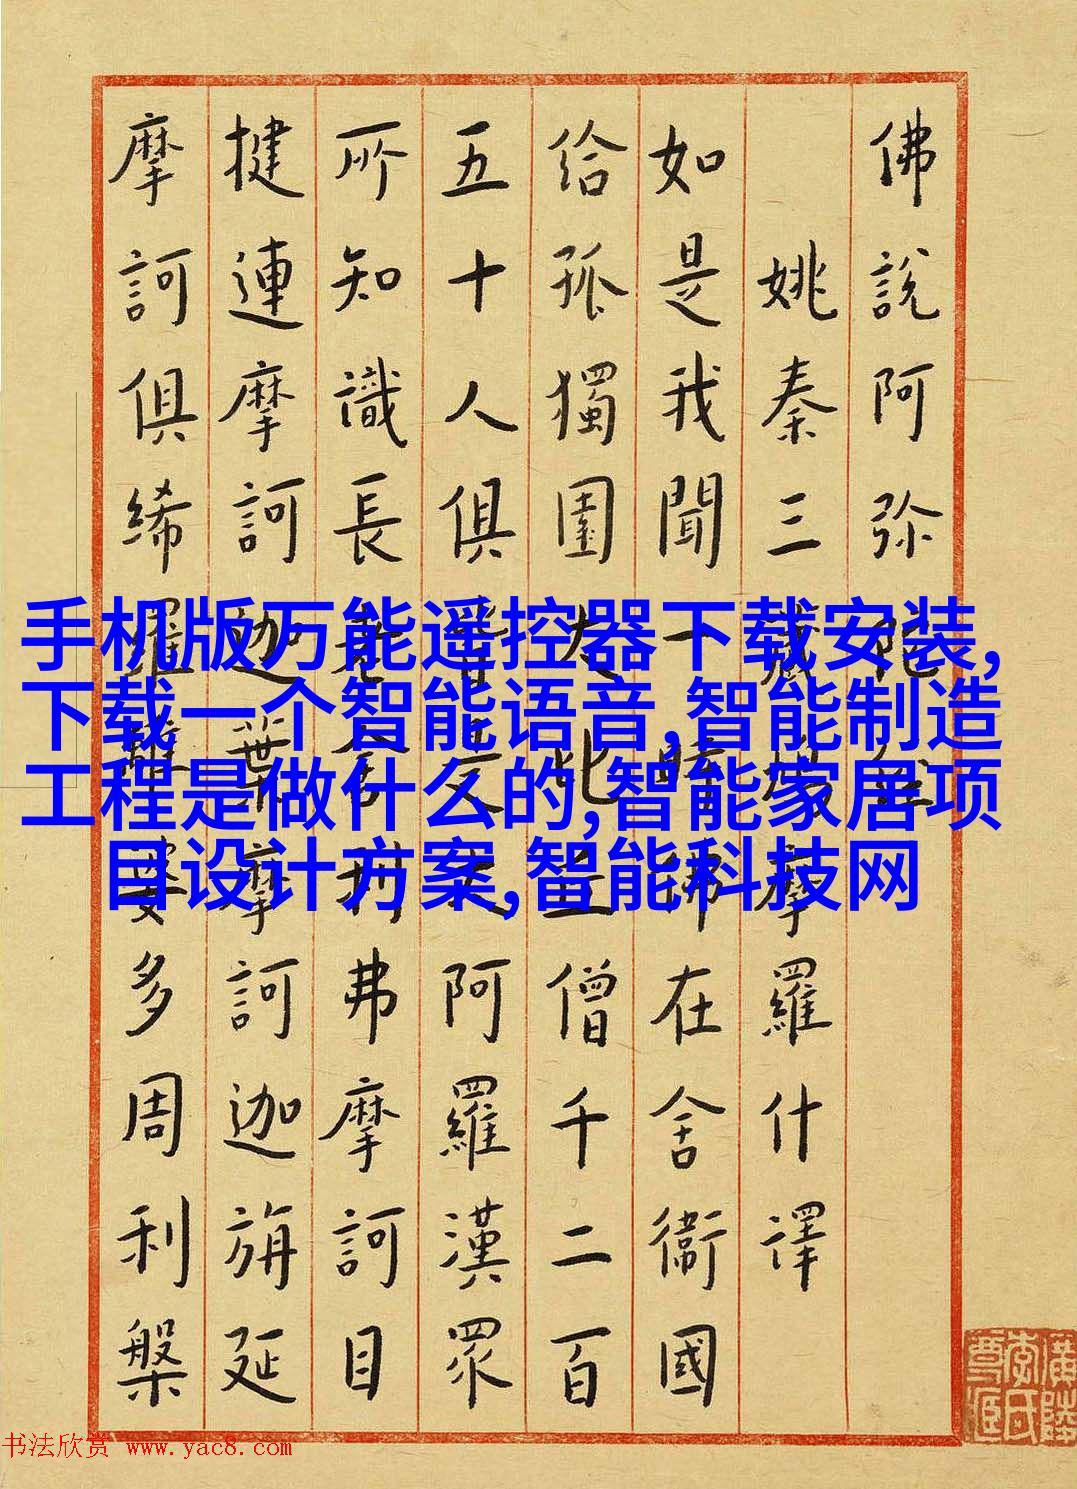 佛說阿弥陀經
姚秦三藏鳩摩羅什譯
如是我聞一時佛在舍衞國
给孤獨園大比丘僧千二百
五十人俱皆是大阿羅漢眾
所知識長老舍利弗摩訶目
揵連摩訶迦葉摩訶迦旃延
摩訶俱絺羅離婆多周利槃
手机版万能遥控器下载安装,
下载一个智能语音,智能制造
工程是做什么的,智能家居项
目设计方案,智能科技网
书法欣赏 www.yac8.com